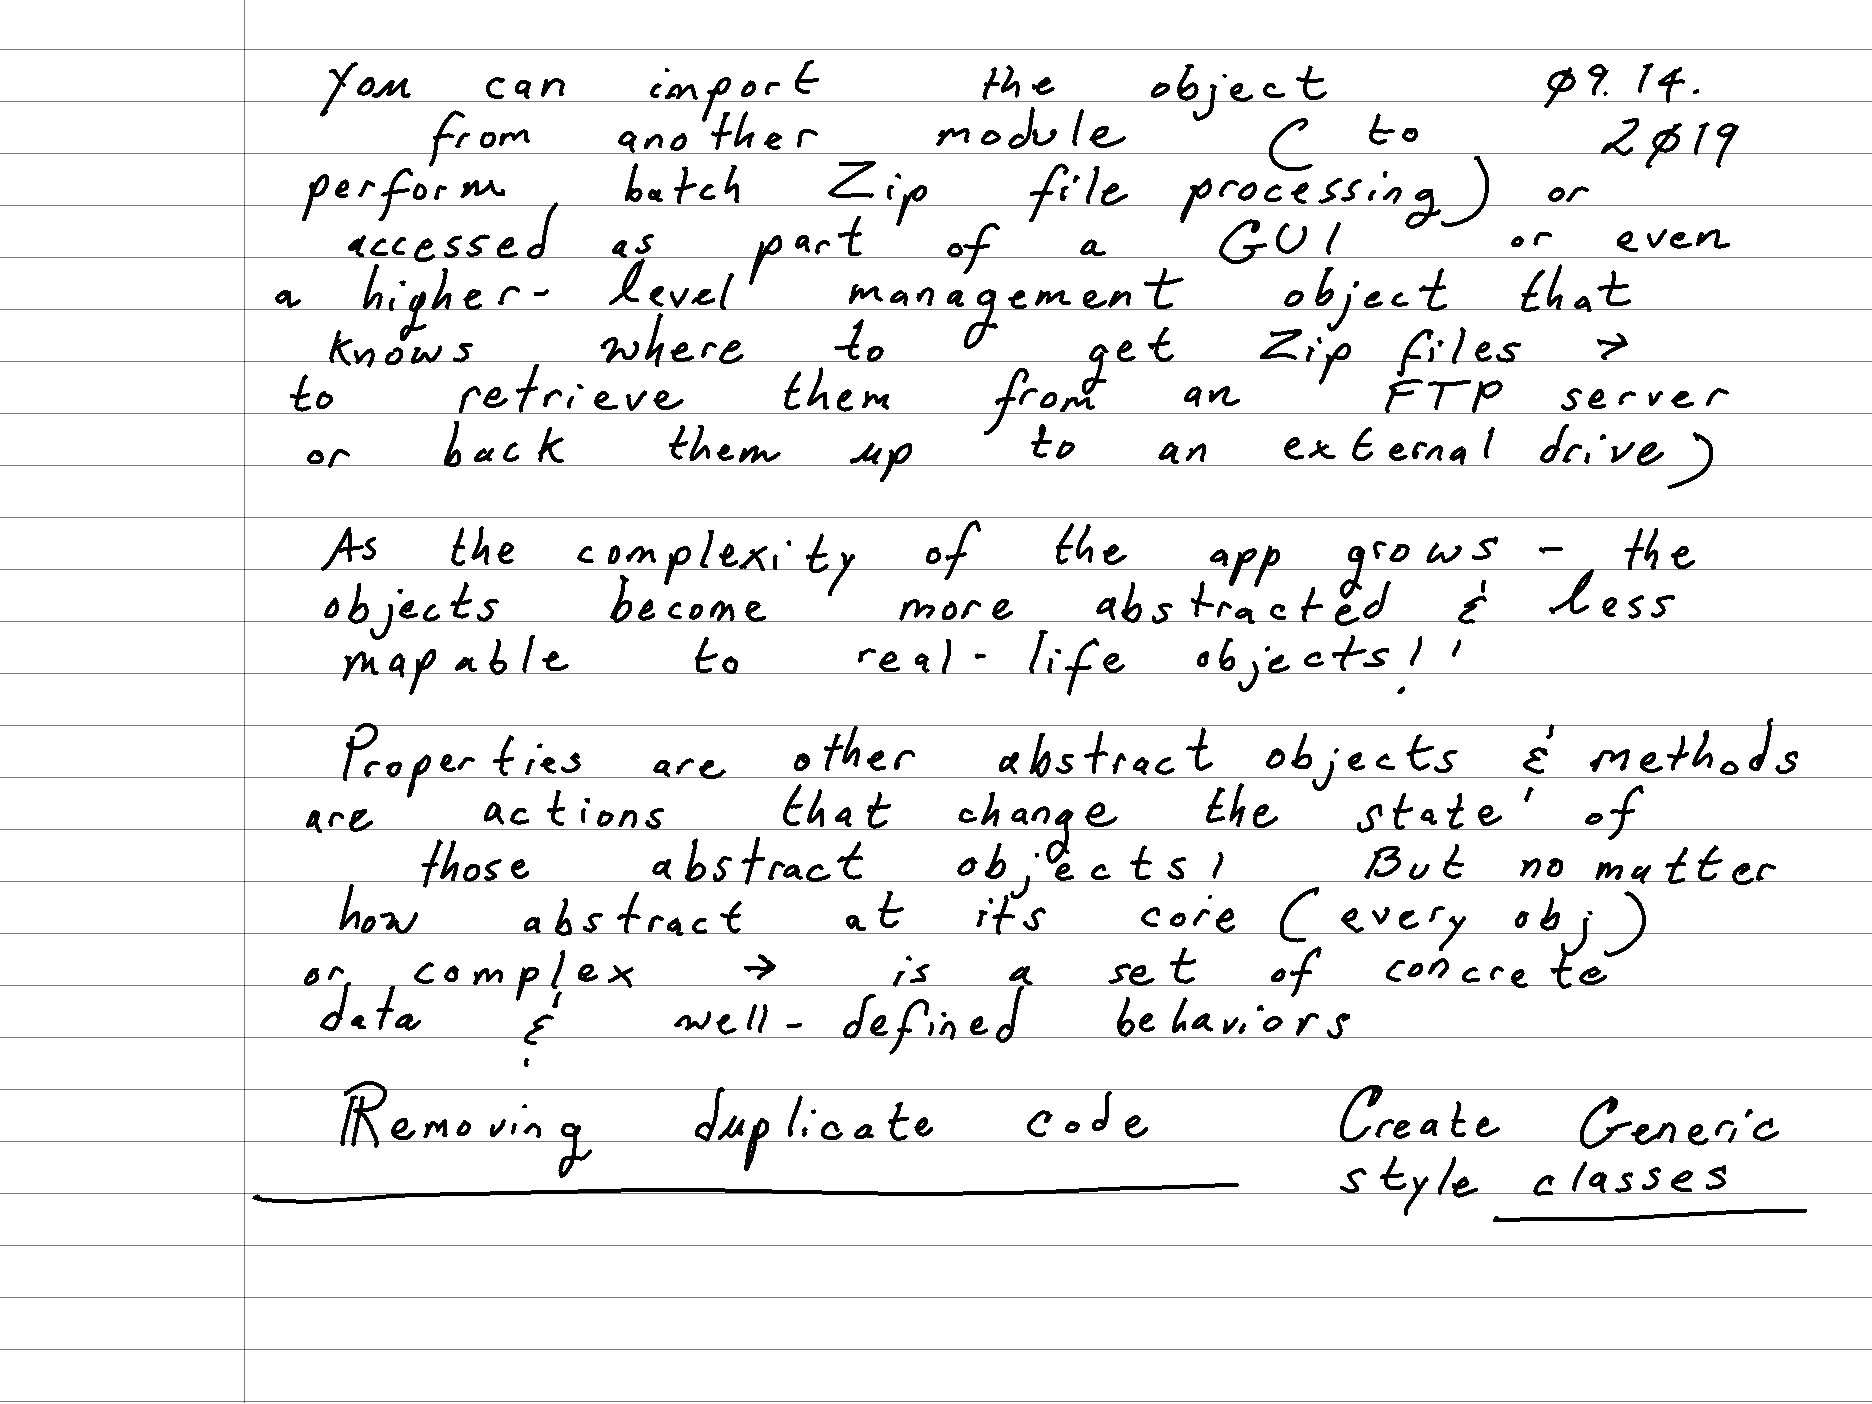 You can import the object 09.14.
from another module ( to 2019
perform batch Zip file processing) or
accessed as part of a GUI or even
a higher-level management object that
knows where to get Zip files →
to retrieve them from an FTP server
or back them up to an external drive)
As the complexity of the app grows - the
objects become more abstracted & less
mapable to real-life objects!!
Properties are other abstract objects & methods
are actions that change the state of
those abstract objects! But no matter
how abstract at its core (every obj)
or complex → is a set of concrete
data & well-defined behaviors
Removing duplicate code Create Generic
style classes